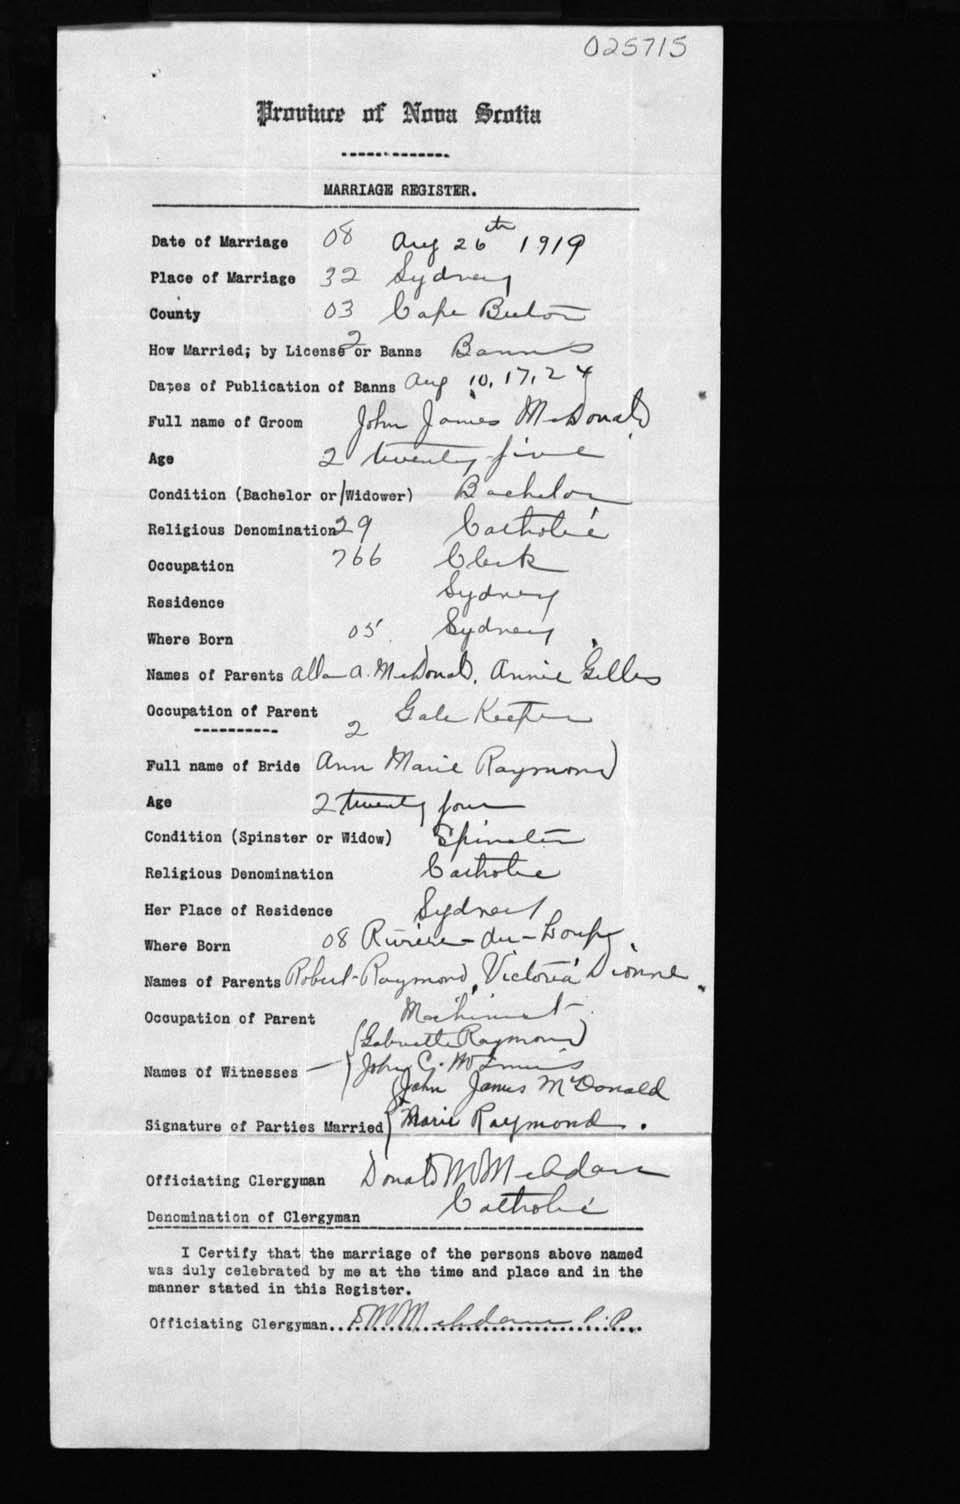 025715
Province of Nova Scotia
MARRIAGE REGISTER.
Date of Marriage 08 Aug 26th 1919
Place of Marriage 32 Sydney
County 03 Cape Breton
How Married; by License 2 or Banns Banns
Dates of Publication of Banns Aug 10, 17, 24
Full name of Groom John James McDonald
Age 2 twenty five
Condition (Bachelor or/Widower) Bachelor
Religious Denomination 29 Catholic
Occupation 766 Clerk
Residence Sydney
Where Born 05 Sydney
Names of Parents Allan A. McDonald, Annie Gillis
Occupation of Parent Gate Keeper
2
Full name of Bride Ann Marie Raymond
Age 2 twenty four
Condition (Spinster or Widow) Spinster
Religious Denomination Catholic
Her Place of Residence Sydney
Where Born 08 Riviere-du-Loup,
Names of Parents Robert Raymond, Victoria Dionne
Occupation of Parent Machinist
Gabrielle Raymond
Names of Witnesses John C. McInnis
John James McDonald
Signature of Parties Married Marie Raymond.
Officiating Clergyman Donald M
Denomination of Clergyman Catholic
I Certify that the marriage of the persons above named
was duly celebrated by me at the time and place and in the
manner stated in this Register.
Officiating Clergyman P.P.